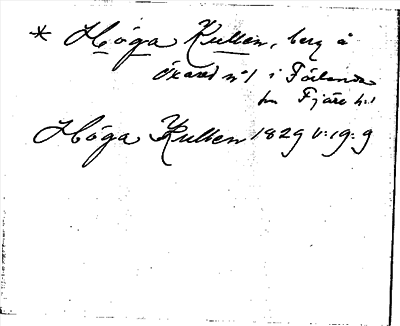 * Höga Kullen, berg å
Ökared nº1 i Förlanda
sn Fjäre h:d
Höga Kullen 1829 V:19:9